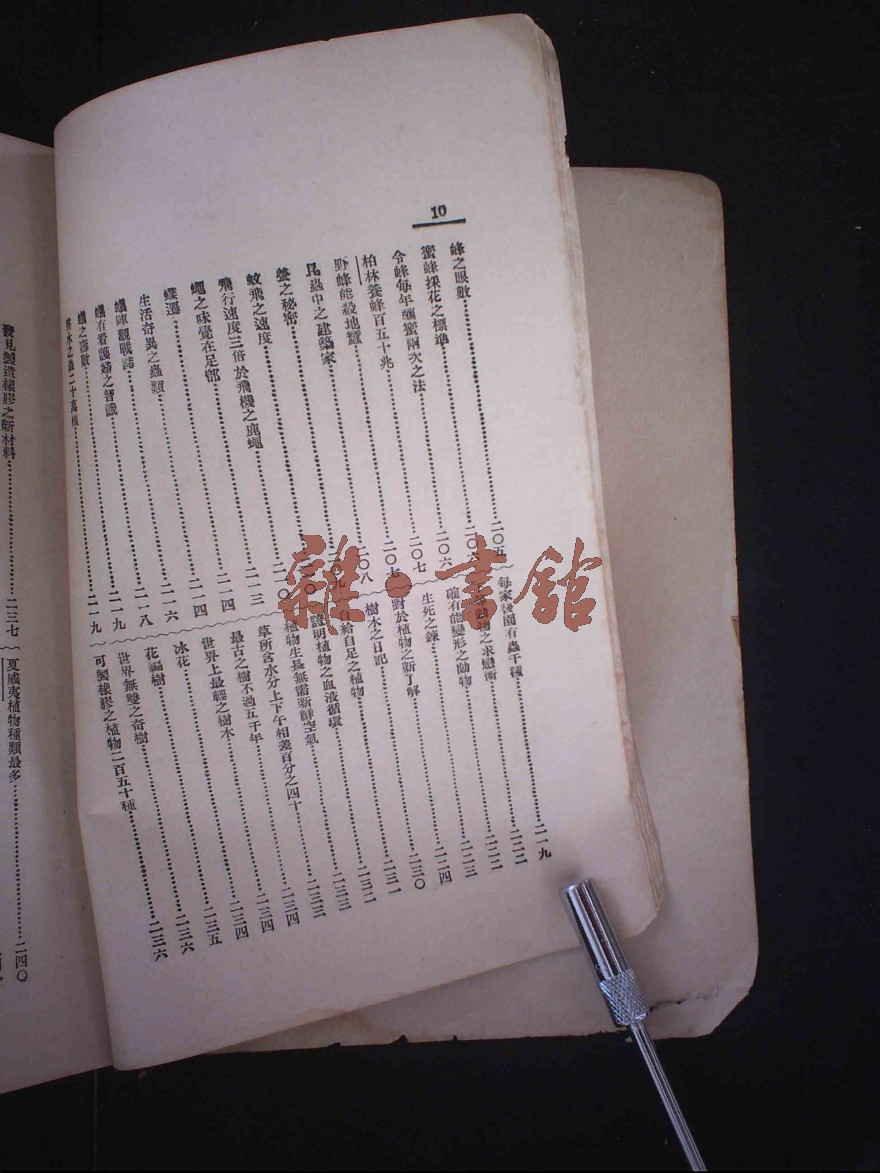 10
蜂之眼數 二〇五
蜜蜂採花之標準 二〇六
令蜂每年釀蜜兩次之法 二〇六
柏林養蜂百五十兆 二〇七
野蜂能殺地蠶 二〇七
昆蟲中之建築家 二〇八
螢之秘密 二〇九
蚊飛之速度
飛行速度三倍於飛機之鹿蠅 二一〇
蠅之味覺在足部 二一三
蝶選 二一四
生活奇異之蟲類 二一四
蟻陣觀戰誌 二一六
蟻有看護婦之智識 二一八
蟻之壽數 二一九
木之蟲二十萬種 二一九
每家後園有蟲千種 二一九
動物之求戀術 二二二
確有能變形之動物 二二二
生死之鍊 二二三
對於植物之新了解 二二四
樹木之日記 二三〇
自給自足之植物 二三一
證明植物之血液循環 二三二
植物生長無需新鮮空氣 二三三
草所含水分上下午相差百分之四十 二三三
最古之樹不過五千年 二三四
世界上最輕之樹木 二三四
冰花 二三四
花福樹 二三五
世界無雙之奇樹 二三六
可製橡膠之植物二百五十種 二三六
發見製造橡膠之新材料 二三七
夏威夷植物種類最多 二四〇
雜·書館